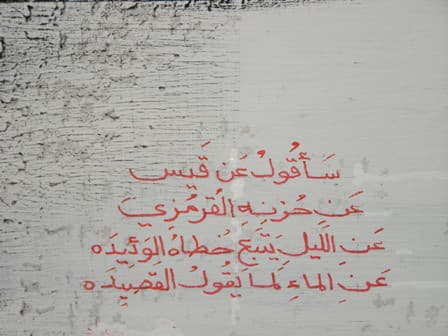 سَأَقُولُ عَن قَيس
عَن حُزنِهِ القُرمُزِيَ
عَنِ اللَيلِ يَتبَع خُطاهُ الوَئيدَه
عَنِ الماءِ لَما يَقُولُ القصِيدَه